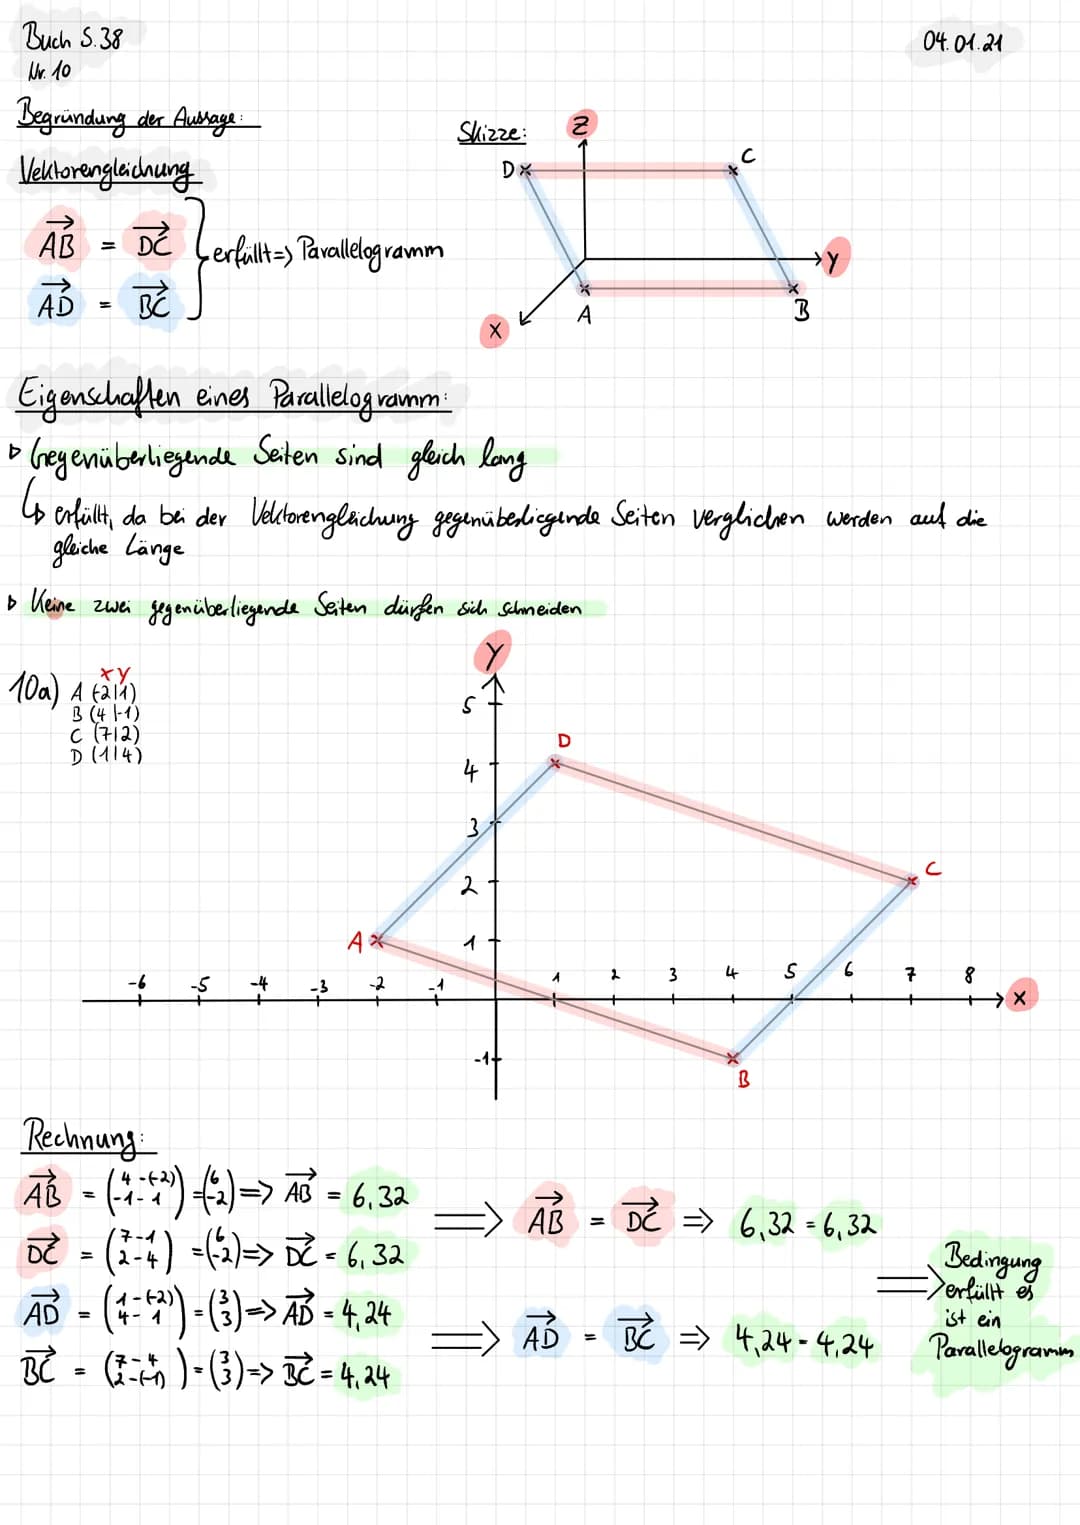 Buch S.38
04.01.21
Nr. 10
Begründung der Aussage:
Vektorengleichung
AB = DC
AD = BC
} erfüllt => Parallelogramm
Skizze:
Z
D
C
Y
A
B
X
Eigenschaften eines Parallelogramm:
▷ Gegenüberliegende Seiten sind gleich lang
↳ erfüllt, da bei der Vektorengleichung gegenüberliegende Seiten verglichen werden auf die
gleiche Länge
▷ Keine zwei gegenüberliegende Seiten dürfen sich schneiden
x y
10a) A (-2|1)
B (4|-1)
C (7|2)
D (1|4)
Y
5
4
3
2
1
-1
-6 -5 -4 -3 -2 -1 1 2 3 4 5 6 7 8
X
D
C
A
B
Rechnung:
AB = (4-(-2) / -1-1) = (6 / -2) => AB = 6,32
DC = (7-1 / 2-4) = (6 / -2) => DC = 6,32
AD = (1-(-2) / 4-1) = (3 / 3) => AD = 4,24
BC = (7-4 / 2-(-1)) = (3 / 3) => BC = 4,24
=> AB = DC => 6,32 = 6,32
=> AD = BC => 4,24 - 4,24
=> Bedingung
erfüllt es
ist ein
Parallelogramm